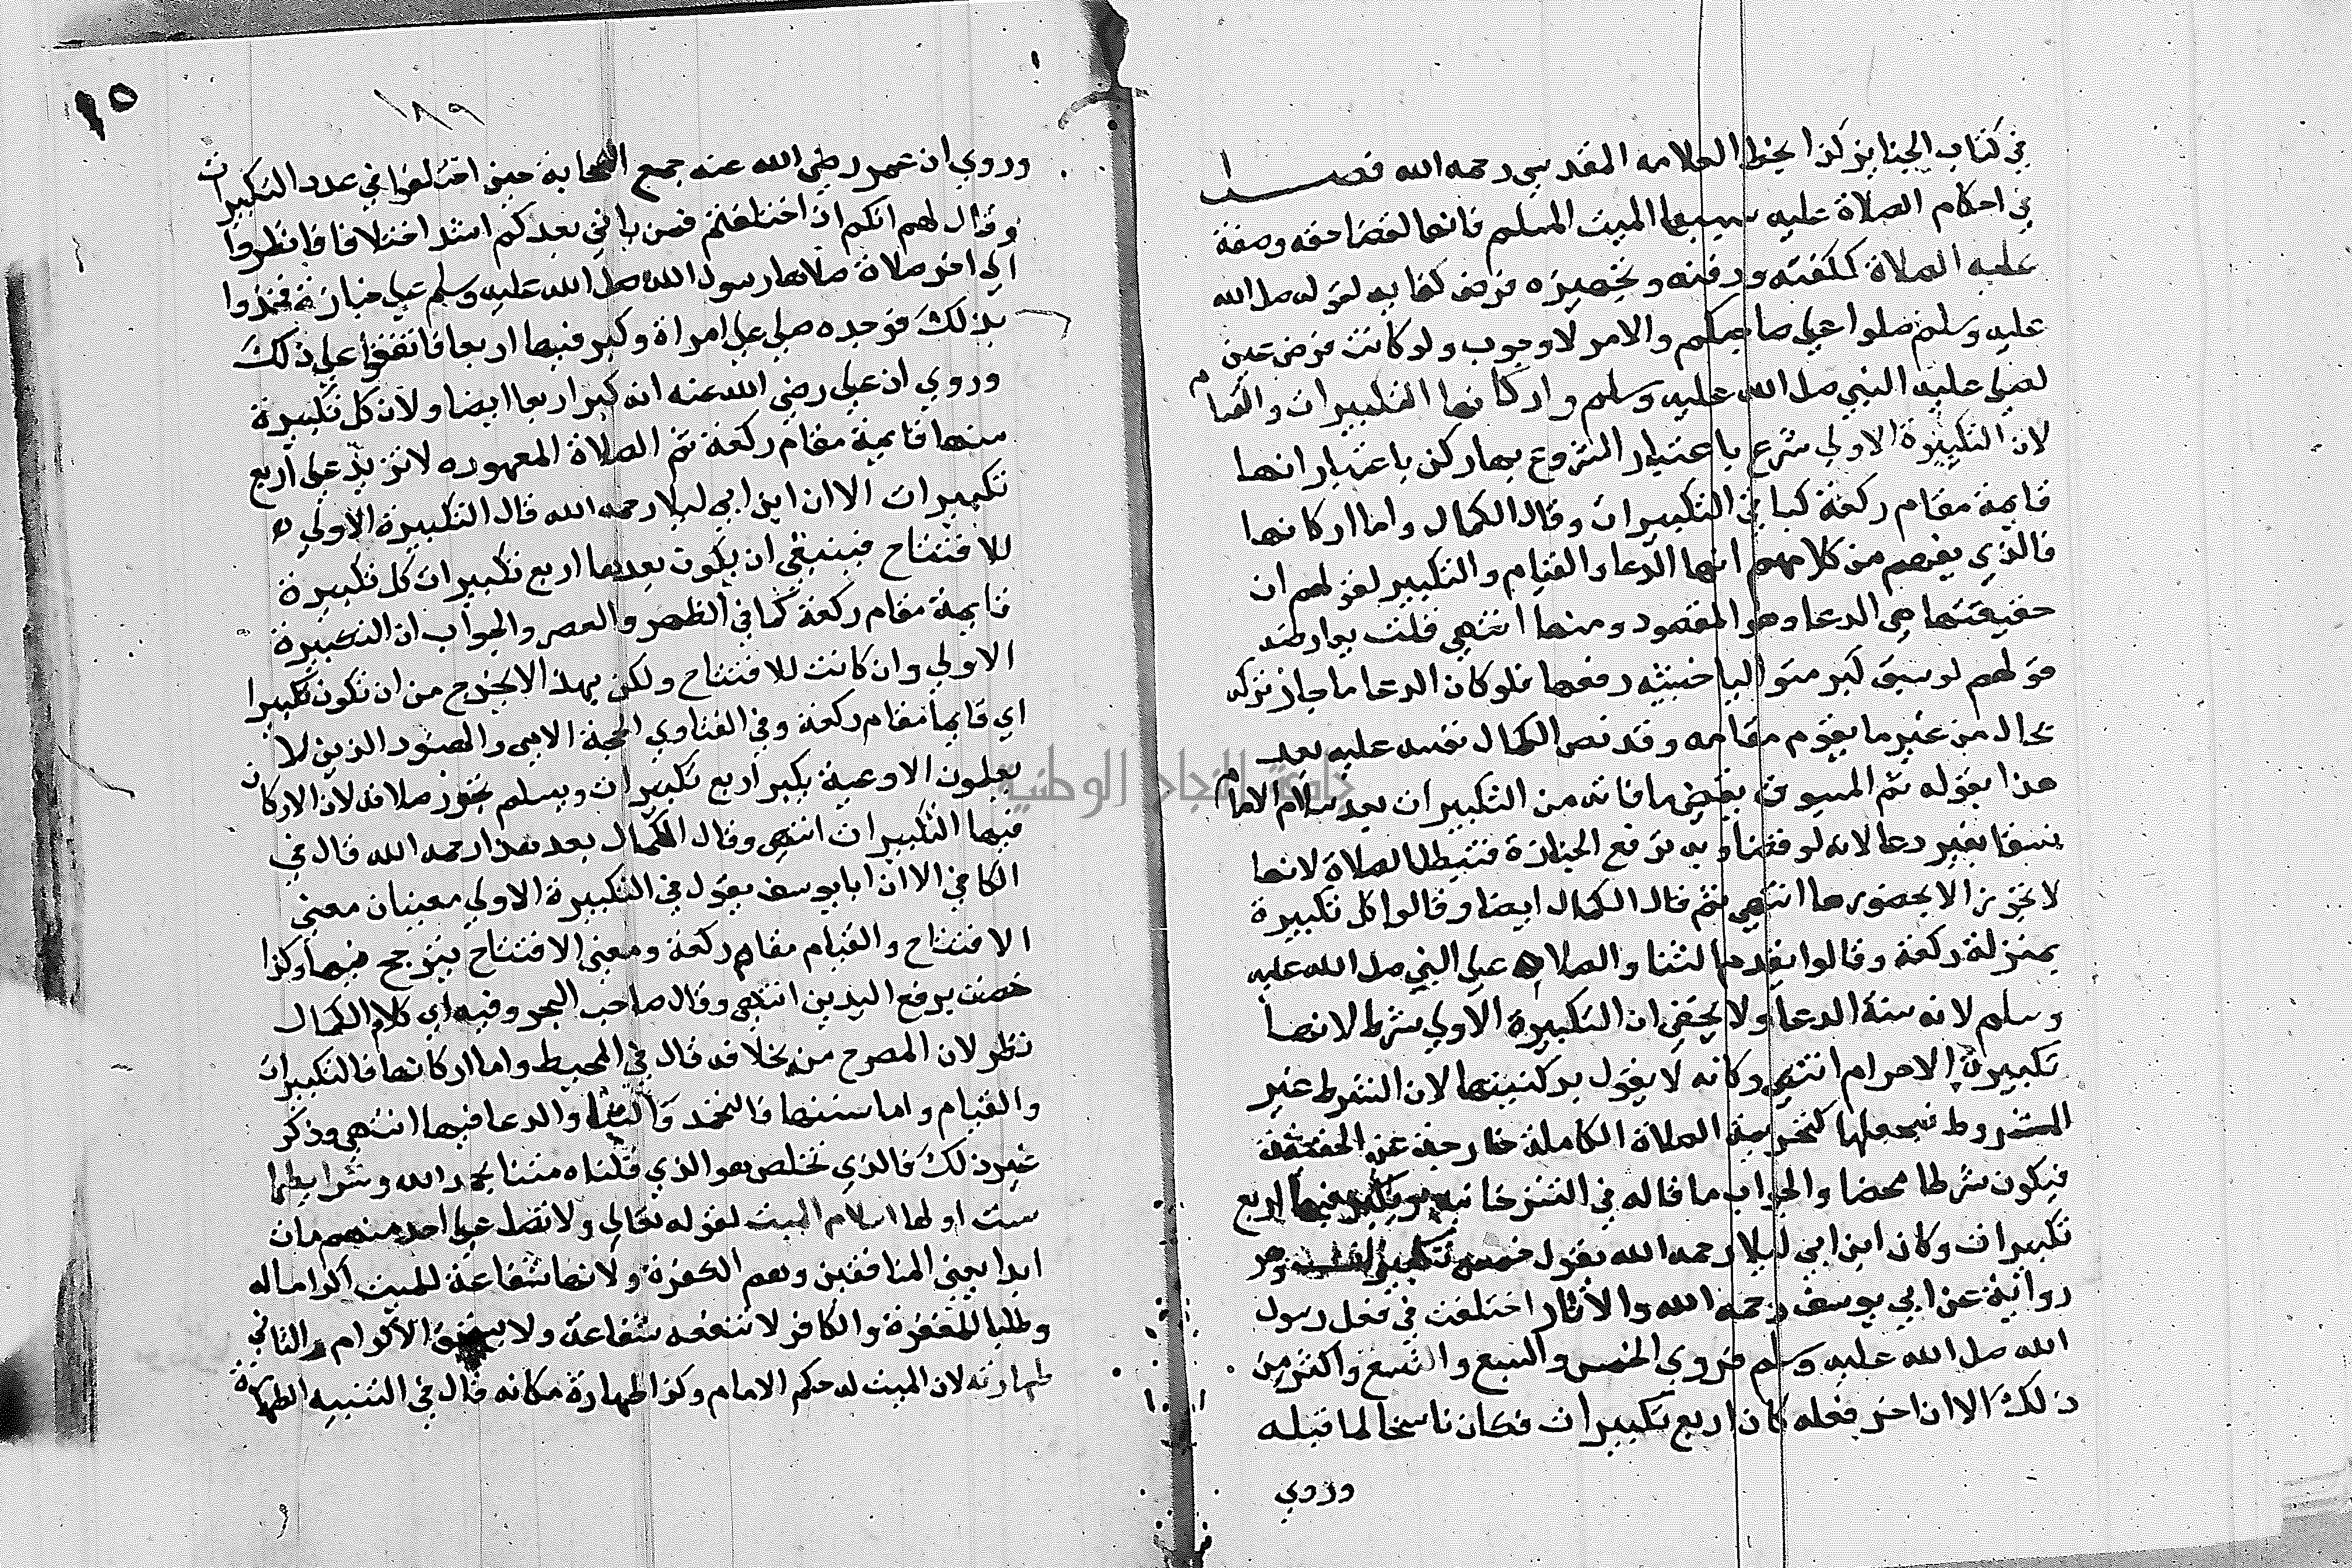 في كتاب الجنايز كذا بخط العلامه المقدسي رحمه الله فصل
في احكام الصلاة عليه سببها الميت المسلم فانها لقضا حقه وصفة
عليه الصلاة ككفنه ودفنه وتجهيزه فرض كفايه لقوله صل الله
عليه وسلم صلوا علي صاحبكم والامر لا وجوب ولو كانت فرض عين
لصلي عليه النبي صل الله عليه وسلم واركانها التكبيرات والقيام
لان التكبيرة الاولي شرع باعتبار الشروع بها ركن باعتبار انها
قايمة مقام ركعة كبا في التكبيرات وقال الكمال واما اركانها
فالذي يفهم من كلامهم انها الدعا والقيام والتكبير لقولهم ان
حقيقتها هي الدعا وهو المقصود ومنها انتهي قلت يعارضه
قولهم لو سبق كبر متواليا خشية رفعها فلو كان الدعا ما جاز تركه
بحال من غير ما يقوم مقامه وقد نص الكمال نفسه عليه بعد
هذا بقوله ثم المسبوق يقضي ما فاته من التكبيرات بعد سلام الامام
نسقا بغير دعا لانه لو قضاه به ترفع الجنازة فتبطل الصلاة لانها
لا تجوز الا بحضورها انتهي ثم قال الكمال ايضا وقالوا كل تكبيرة
بمنزلة ركعة وقالوا يقدم الثنا والصلاه علي النبي صل الله عليه
وسلم لانه سنة الدعا ولا يخفي ان التكبيرة الاولي شرط لانها
تكبيرة الاحرام انتهي وكانه لا يقول بركنيتها لان الشرط غير
المشروط فيجعلها كتحريمة الصلاة الكاملة خارجة عن الحقيقة
فيكون شرطا محضا والجواب ما قاله في التترخانيه ويكبر فيها اربع
تكبيرات وكان ابن ابي ليلا رحمه الله يقول خمس تكبيرات وهو
رواية عن ابي يوسف رحمه الله والاثار اختلفت في فعل رسول
الله صل الله عليه وسلم فروي الخمس والسبع والتسع واكثر من
ذلك الا ان اخر فعله كان اربع تكبيرات فكان ناسخا لما قبله
وروي
١٥
١٨٩
وروي ان عمر رضي الله عنه جمع الصحابة حين اختلفوا في عدد التكبيرات
وقال لهم انكم اذ اختلفتم فمن ياتي بعدكم اشد اختلافا فانظروا
الي اخر صلاة صلاها رسول الله صل الله عليه وسلم علي جنازة فخذوا
بذلك فوجده صلي علي امراة وكبر فيها اربعا فاتفقوا علي ذلك
وروي ان علي رضي الله عنه انه كبر اربعا ايضا ولان كل تكبيرة
منها قايمة مقام ركعة ثم الصلاة المعهوده لا تزيد علي اربع
تكبيرات الا ان ابن ابي ليلا رحمه الله قال التكبيرة الاولي
للافتتاح فينبغي ان يكون بعدها اربع تكبيرات كل تكبيرة
قايمة مقام ركعة كما في الظهر والعصر والجواب ان التكبيرة
الاولي وان كانت للافتتاح ولكن بهذا لا يخرج من ان تكون تكبيرا
اي قايما مقام ركعة وفي الفتاوي الحجة الامي والصنود الذين لا
يعلمون الاوعية يكبر اربع تكبيرات ويسلم تجوز صلاته لان الاركان
فيها التكبيرات انتهي وقال الكمال بعد هذا رحمه الله قال في
الكافي الا ان ابا يوسف يقول في التكبيرة الاولي معنيان معني
الافتتاح والقيام مقام ركعة ومعني الافتتاح يترجح فيها وكذا
خصت برفع اليدين انتهي وقال صاحب البحر وفيه اي كلام الكمال
نظر لان المصرح من بخلافه قال في المحيط واما اركانها فالتكبيرات
والقيام واما سننها فالتحمد والثنا والدعا فيها انتهي وذكر
غير ذلك فالذي تخلص هو الذي قلناه متنا بحمد الله وشرايطها
ست اولها اسلام الميت لقوله تعالي ولا تصل علي احد منهم مات
ابدا يعني المنافقين وهم الكفرة ولانها شفاعة للميت اكراما له
وطلبا للمغفرة والكافر لا تنفعه شفاعة ولا يستحق الاكرام والثاني
طهارته لان الميت له حكم الامام وكذا طهارة مكانه قال في التنبيه الطهارة
جامعة النجاح الوطنية